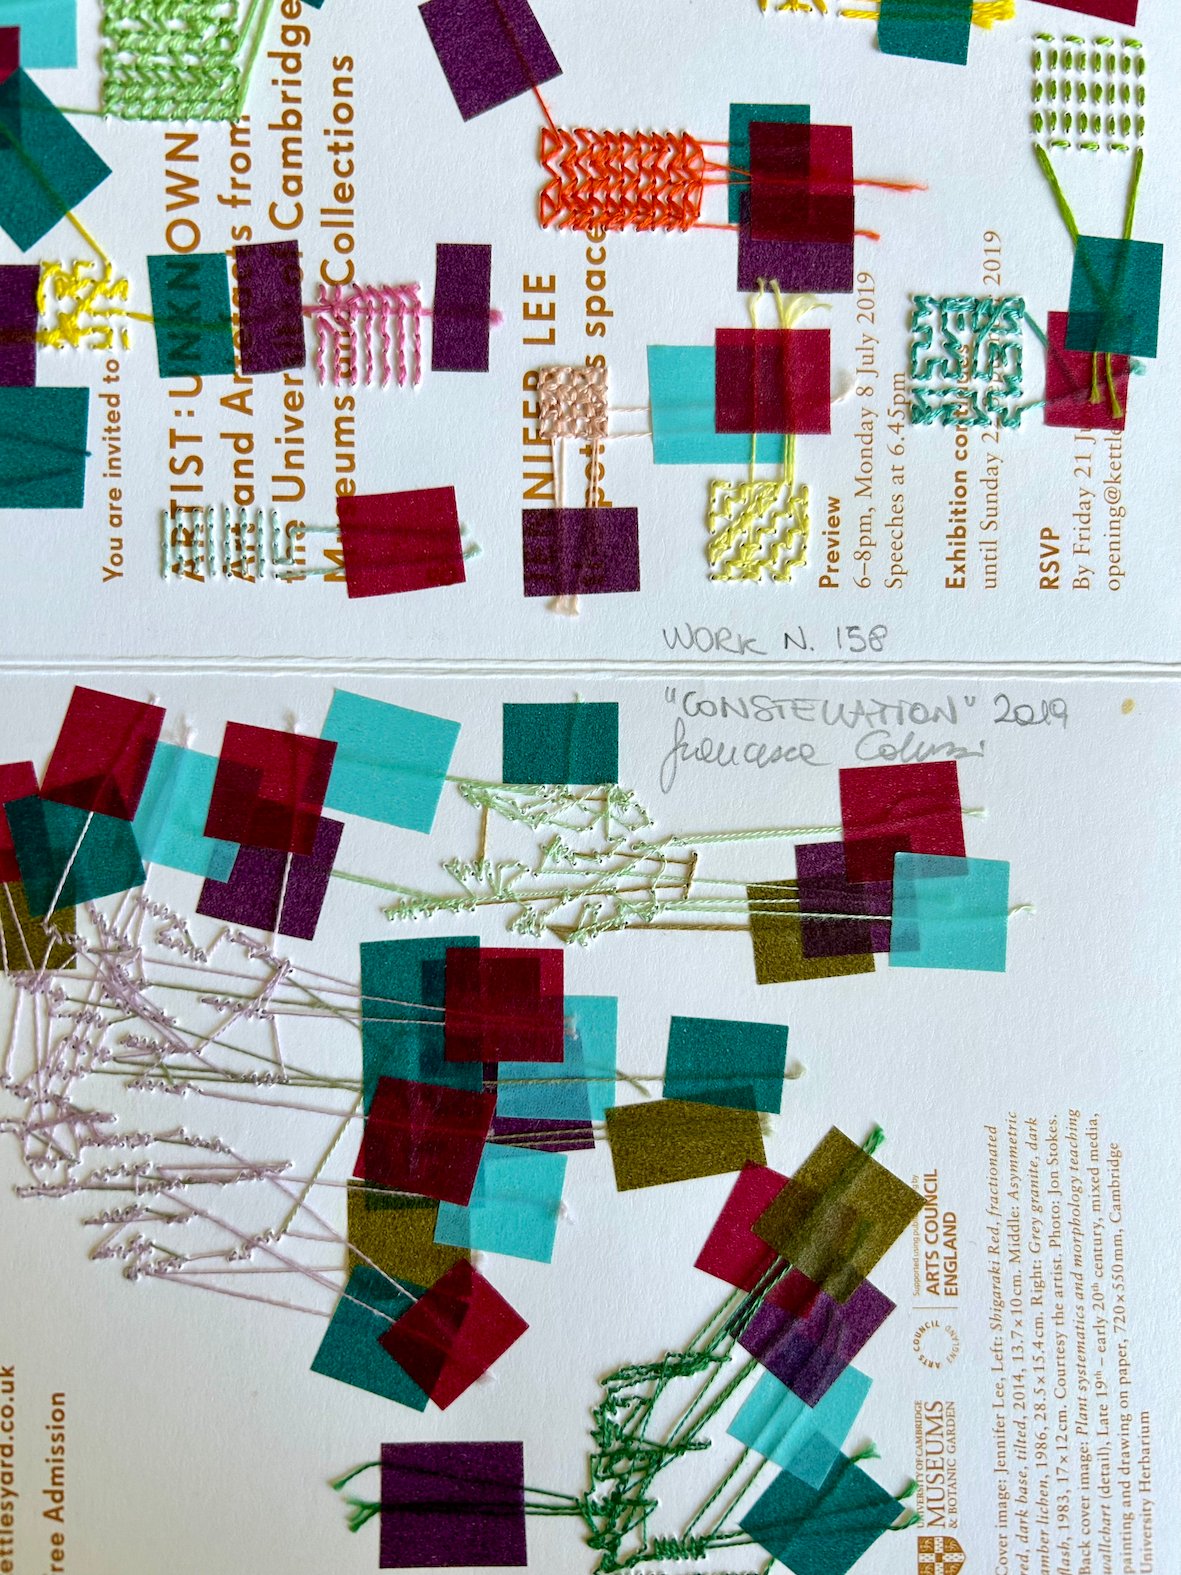 You are invited to
ARTIST:UNKNOWN
Art and Artefacts from
the University of Cambridge
Museums and Collections
JENNIFER LEE
potter's space
Preview
6–8pm, Monday 8 July 2019
Speeches at 6.45pm
Exhibition continues
until Sunday 2 2019
RSVP
By Friday 21 Ju
opening@kettle
WORK N. 158
"CONSTELLATION" 2019
Francesca Colussi
ettlesyard.co.uk
ree Admission
UNIVERSITY OF CAMBRIDGE
MUSEUMS
& BOTANIC GARDEN
Supported using public by
ARTS COUNCIL
ENGLAND
Cover image: Jennifer Lee, Left: Shigaraki Red, fractionated
red, dark base, tilted, 2014, 13.7 x 10 cm. Middle: Asymmetric
amber lichen, 1986, 28.5 x 15.4 cm. Right: Grey granite, dark
flash, 1983, 17 x 12 cm. Courtesy the artist. Photo: Jon Stokes.
Back cover image: Plant systematics and morphology teaching
wallchart (detail), Late 19th – early 20th century, mixed media,
painting and drawing on paper, 720 x 550 mm, Cambridge
University Herbarium